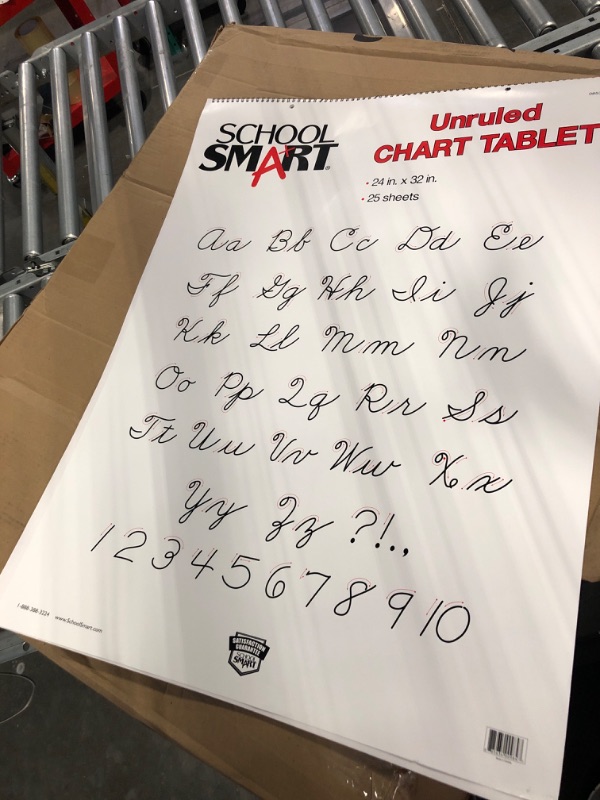 SCHOOL
SMART
Unruled
CHART TABLET
• 24 in. x 32 in.
• 25 sheets
Aa Bb Cc Dd Ee
Ff Gg Hh Ii Jj
Kk Ll Mm Nn
Oo Pp Qq Rr Ss
Tt Uu Vv Ww Xx
Yy Zz ?!.,
1 2 3 4 5 6 7 8 9 10
1-888-388-3224 www.SchoolSmart.com
SATISFACTION
GUARANTEE
SCHOOL
SMART